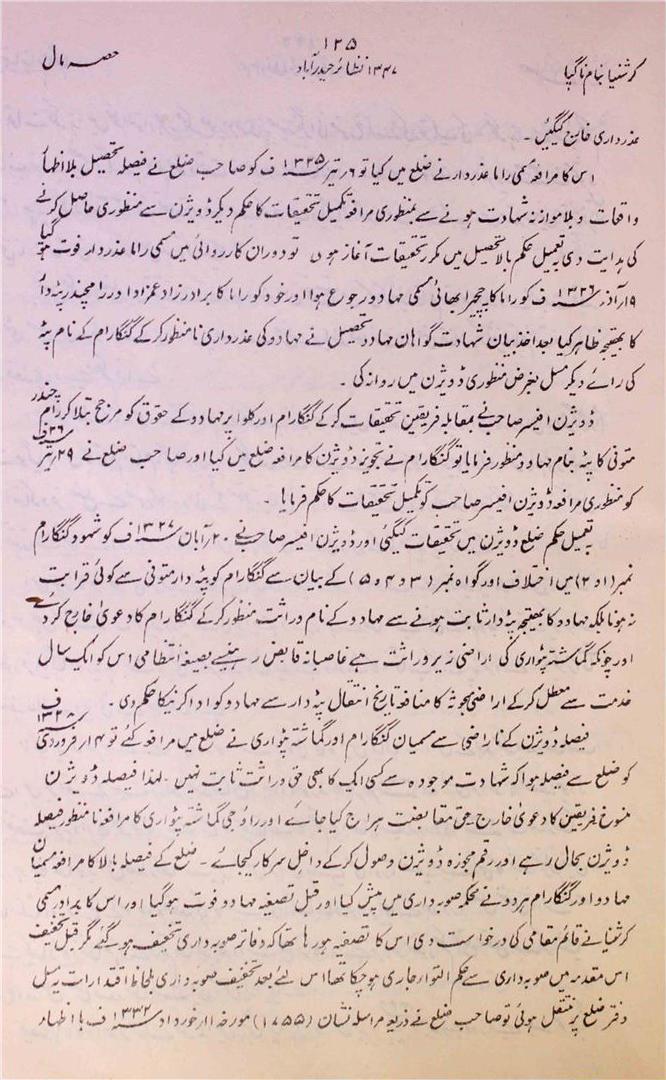 ۱۲۵
کرشنیا بنام ناگپا
۱۳۴۷ نظائر حیدرآباد
حصہ مال
عذرداری خارج کیگئیں۔
اس کا مرافعہ مسمی راما عذردار نے ضلع میں کیا تو ۶ر تیر ۱۳۲۵ ف کو صاحب ضلع نے فیصلہ تحصیل بلا اظہار
واقعات و بلا موازنہ شہادت ہونے سے بمنظوری مرافعہ تکمیل تحقیقات کا حکم دیکر ڈویژن سے منظوری حاصل کرنے
کی ہدایت دی بہ تعمیل حکم بالا تحصیل میں مکرر تحقیقات آغاز ہوئی تو دوران کارروائی میں مسمی راما عذردار فوت ہو گیا
۱۹ر آذر ۱۳۲۶ ف کو راما کا چچیرا بھائی مسمی مہادو رجوع ہوا اور خود کو راما کا برادر زاد عمزاد اور رامچندر پٹہ دار
کا بھتیجہ ظاہر کیا بعد اخذ بیان شہادت گواہان مہادو تحصیل نے مہادو کی عذرداری نامنظور کر کے گنگارام کے نام پٹہ
کی رائے دیکر مسل بغرض منظوری ڈویژن میں روانہ کی۔
ڈویژن افیسر صاحب نے بمقابلہ فریقین تحقیقات کر کے گنگارام اور کلوا پر مہادو کے حقوق کو مرجح بتلا کر رام چندر
متوفی کا پٹہ بنام مہادو منظور فرمایا تو گنگارام نے تجویز ڈویژن کا مرافعہ ضلع میں کیا اور صاحب ضلع نے ۲۹ر تیر ۲۶ ف
کو منظوری مرافعہ ڈویژن افیسر صاحب کو تکمیل تحقیقات کا حکم فرمایا۔
بہ تعمیل حکم ضلع ڈویژن میں تحقیقات کیگئی اور ڈویژن افیسر صاحب نے ۲۰ر آبان ۱۳۲۷ ف کو شہود گنگارام
نمبر (۱و۲) میں اختلاف اور گواہ نمبر (۳و۴و۵) کے بیان سے گنگارام کو پٹہ دار متوفی سے کوئی قرابت
نہ ہونا بلکہ مہادو کا بھتیجہ پٹہ دار ثابت ہونے سے مہادو کے نام وراثت منظور کر کے گنگارام کا دعویٰ خارج کر دئے
اور چونکہ گماشتہ پٹواری کی اراضی زیر وراثت پے غاصبانہ قابض رہنے سے بصیغہ انتظامی اس کو ایک سال
خدمت سے معطل کر کے اراضی مبحوثہ کا منافعہ تاریخ انتقال پٹہ دار سے مہادو کو ادا کرنیکا حکم دی۔
فیصلہ ڈویژن کے ناراضی سے مسمیان گنگارام اور گماشتہ پٹواری نے ضلع میں مرافعہ کئے تو ۴ار فروردی ۱۳۲۸ ف
کو ضلع سے فیصلہ ہوا کہ شہادت موجودہ سے کسی ایک کا بھی حق وراثت ثابت نہیں۔ لہذا فیصلہ ڈویژن
منسوخ فریقین کا دعویٰ خارج حق مقابضت ہراج کیا جائے اور راؤجی گماشتہ پٹواری کا مرافعہ نامنظور فیصلہ
ڈویژن بحال رہے اور رقم مجوزہ ڈویژن وصول کر کے داخل سرکار کیجائے۔ ضلع کے فیصلہ بالا کا مرافعہ مسمیان
مہادو اور گنگارام ہر دو نے محکمہ صوبہ داری میں پیش کیا اور قبل تصفیہ مہادو فوت ہو گیا اور اس کا پدر مسمی
کرشنیا نے قائم مقامی کی درخواست دی اس کا تصفیہ ہو رہا تھا کہ دفاتر صوبہ داری تخفیف ہو گئے مگر قبل تخفیف
اس مقدمہ میں صوبہ داری سے حکم التوا جاری ہو چکا تھا اس لئے بعد تخفیف صوبہ داری بلحاظ اقتدارات یہ مسل
دفتر ضلع پر منتقل ہوئی تو صاحب ضلع نے ذریعہ مراسلہ نشان (۱۷۵۵) مورخہ ۱۱ر خورداد ۱۳۳۲ ف با اظہار